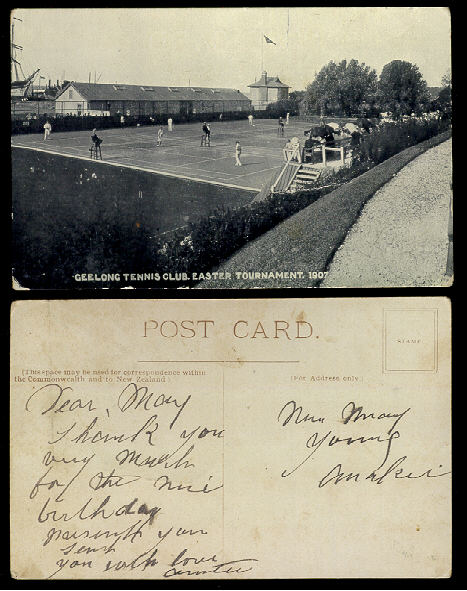 GEELONG TENNIS CLUB. EASTER TOURNAMENT. 1907
POST CARD.
(This space may be used for correspondence within
the Commonwealth and to New Zealand)
(For Address only)
STAMP
Dear, May
Thank you
very Much
for the nice
birthday
present you
sent
you with love
Auntee
Miss May
Young
Anakie